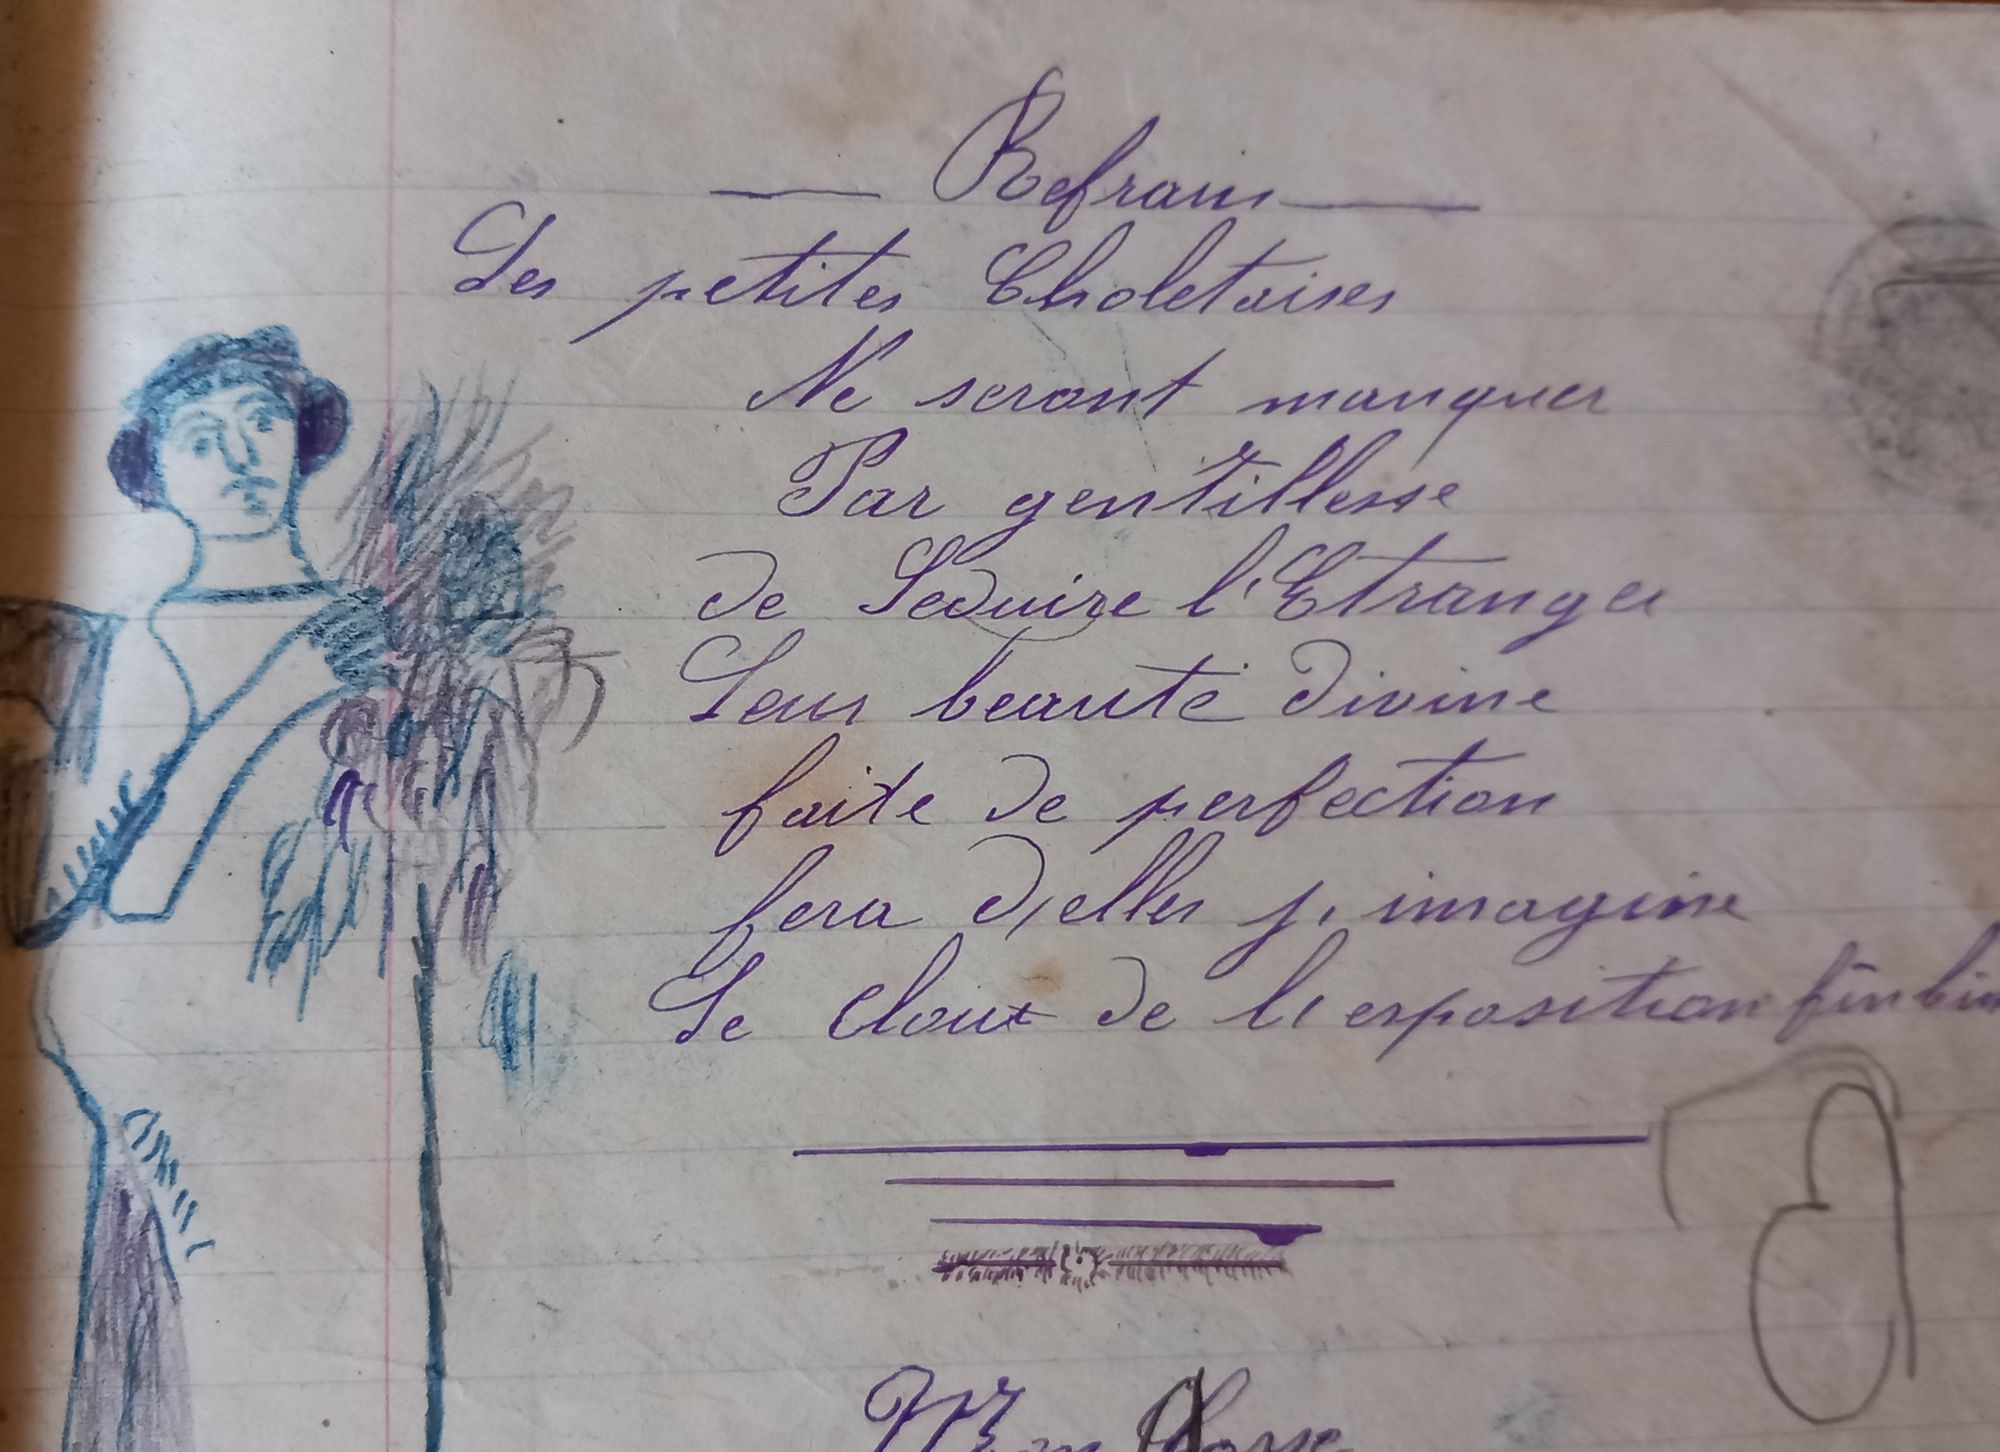 Refrain
Les petites Choletaises
Ne seront manquer
Par gentillesse
de Seduire l'Etranger
Leur beauté divine
faite de perfection
fera d'elles j'imagine
Le cloux de l'exposition
Mon